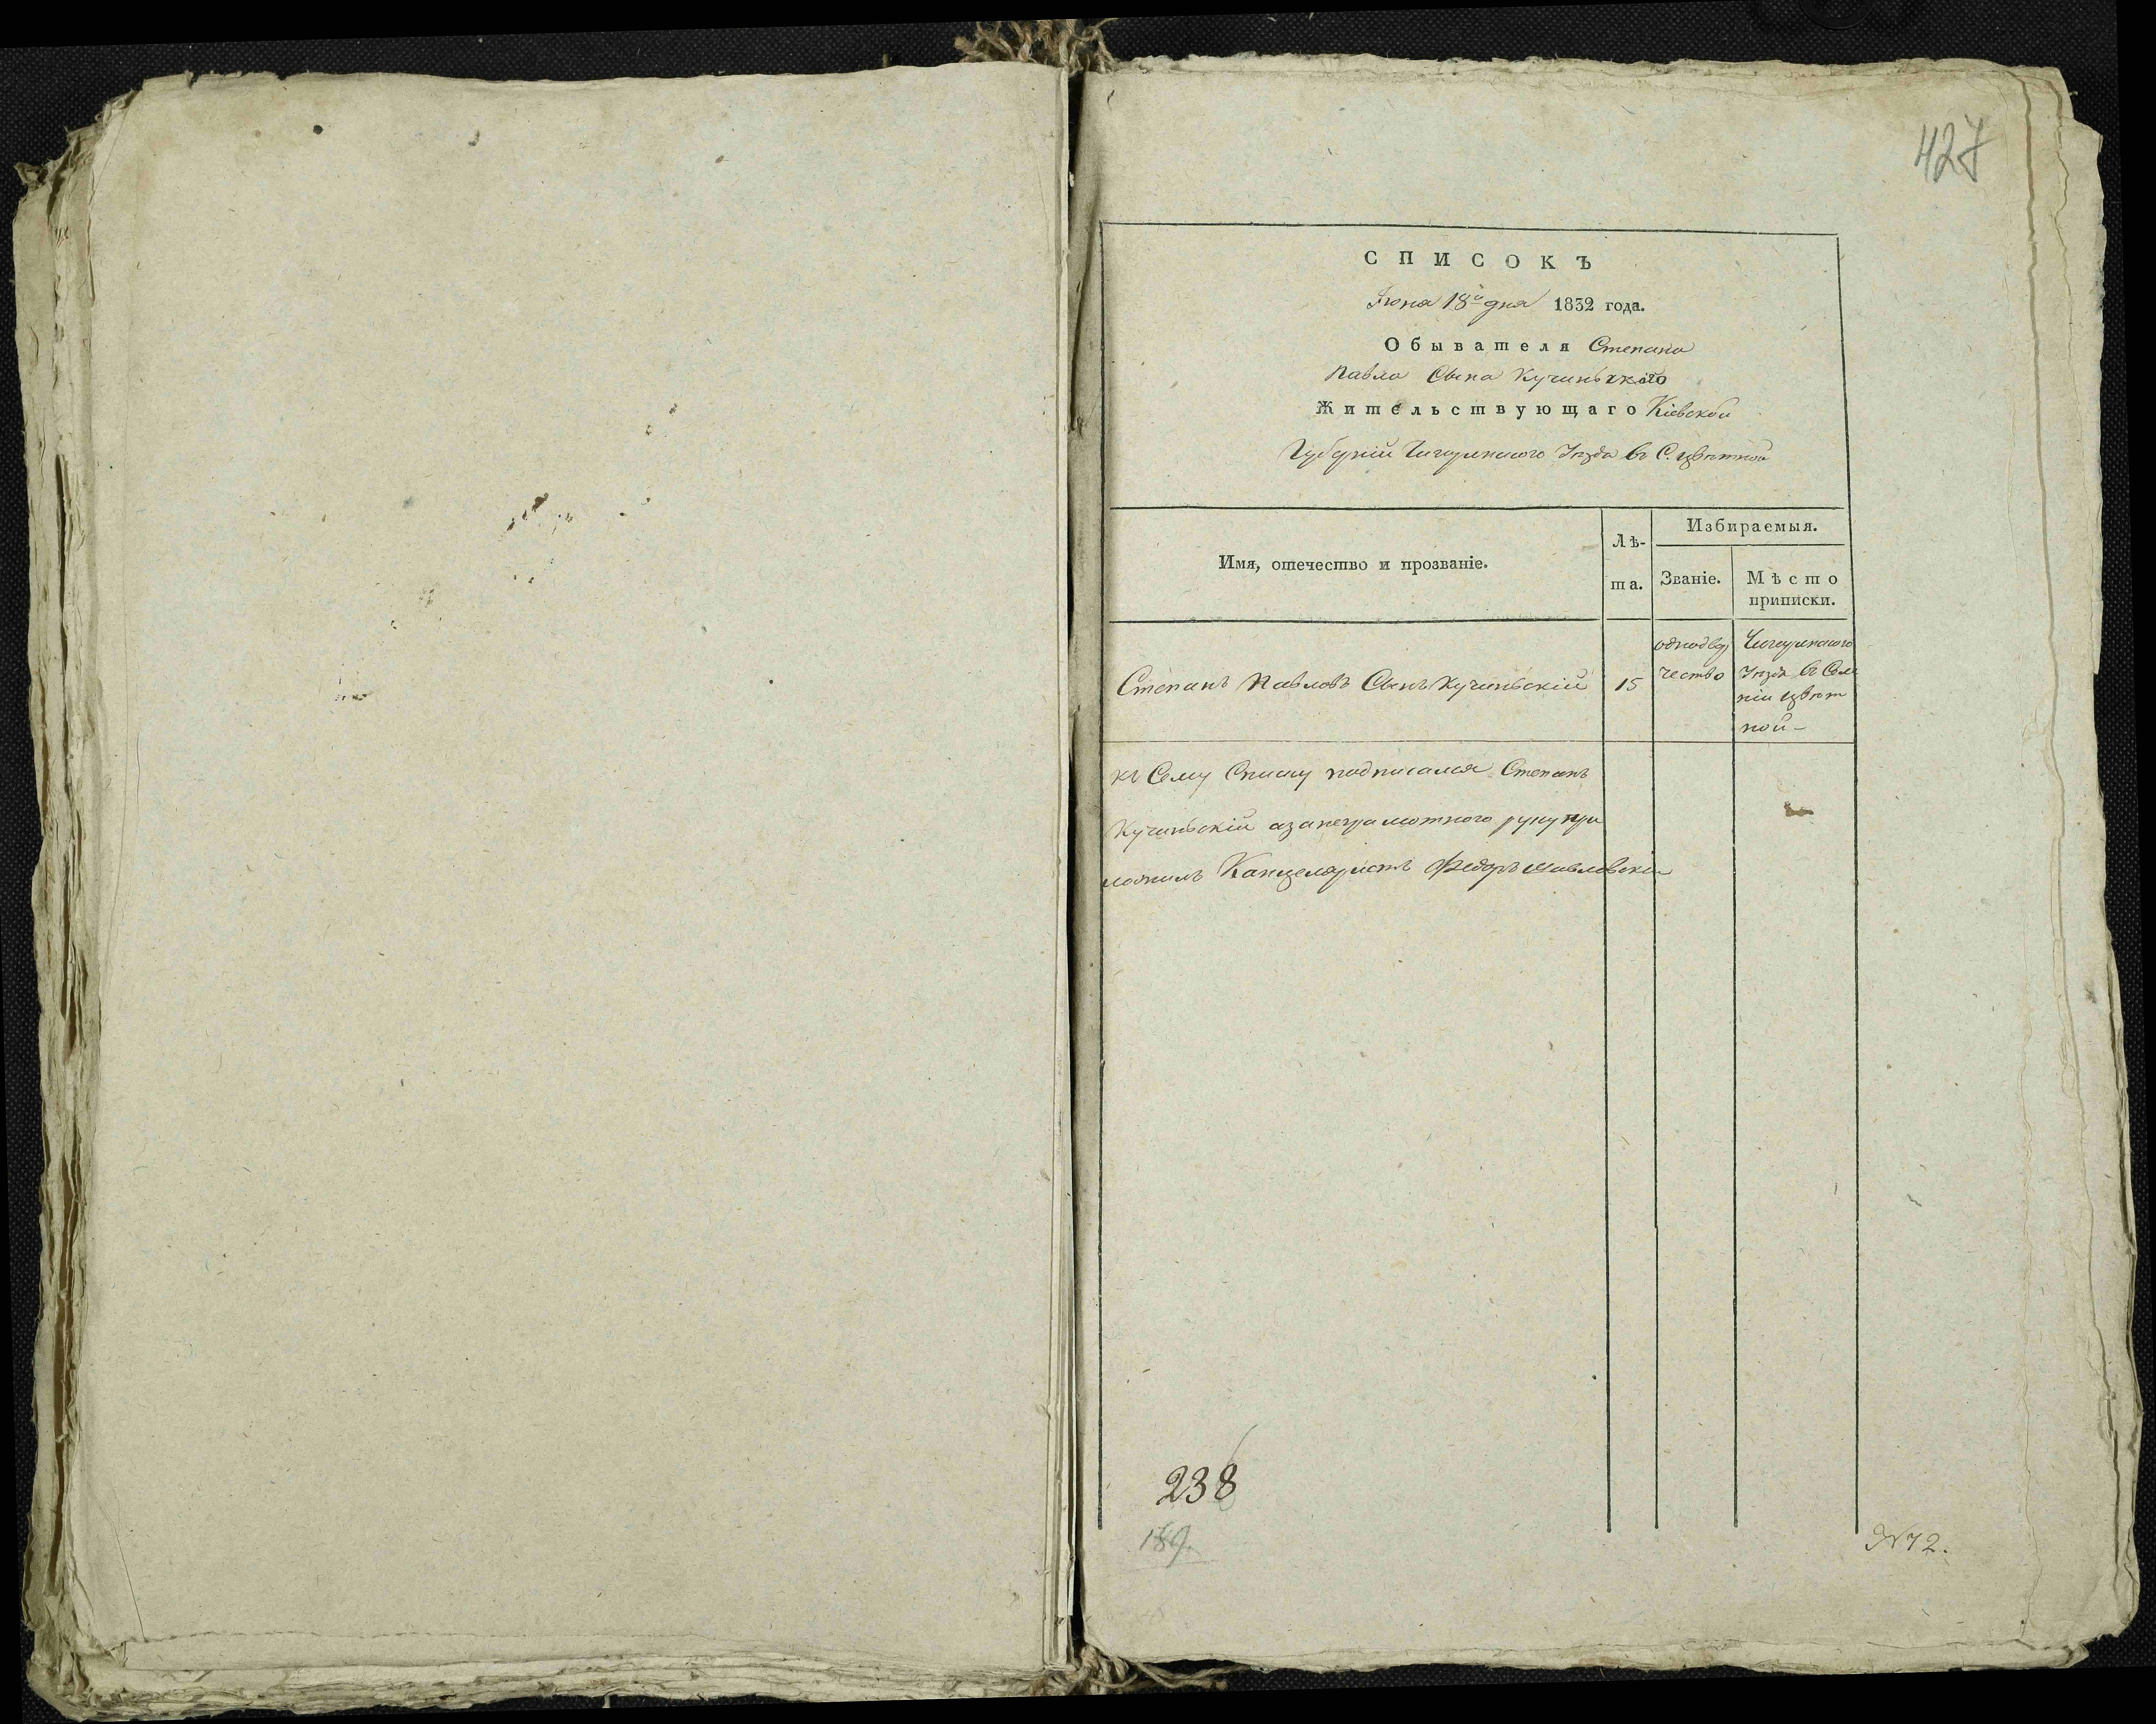 427
СПИСОКЪ
Іюня 18го дня 1832 года.
Обывателя Степана
Павла Сына Кучиньского
Жительствующаго Кіевской
Губерніи Чигиринского Уезда въ С. Цвѣтной
Имя, отечество и прозваніе.
Лѣ-
та.
Избираемыя.
Званіе.
Мѣсто
приписки.
Степанъ Павловъ Сынъ Кучиньскій
15
однодвр
чество
Чигиринского
Уезда въ Селе
ніи Цвѣт
ной-
Къ Сему Списку подписался Степанъ
Кучиньскій а за неграмотного руку при
ложилъ Канцеляристъ Федоръ
238
189.
№72.